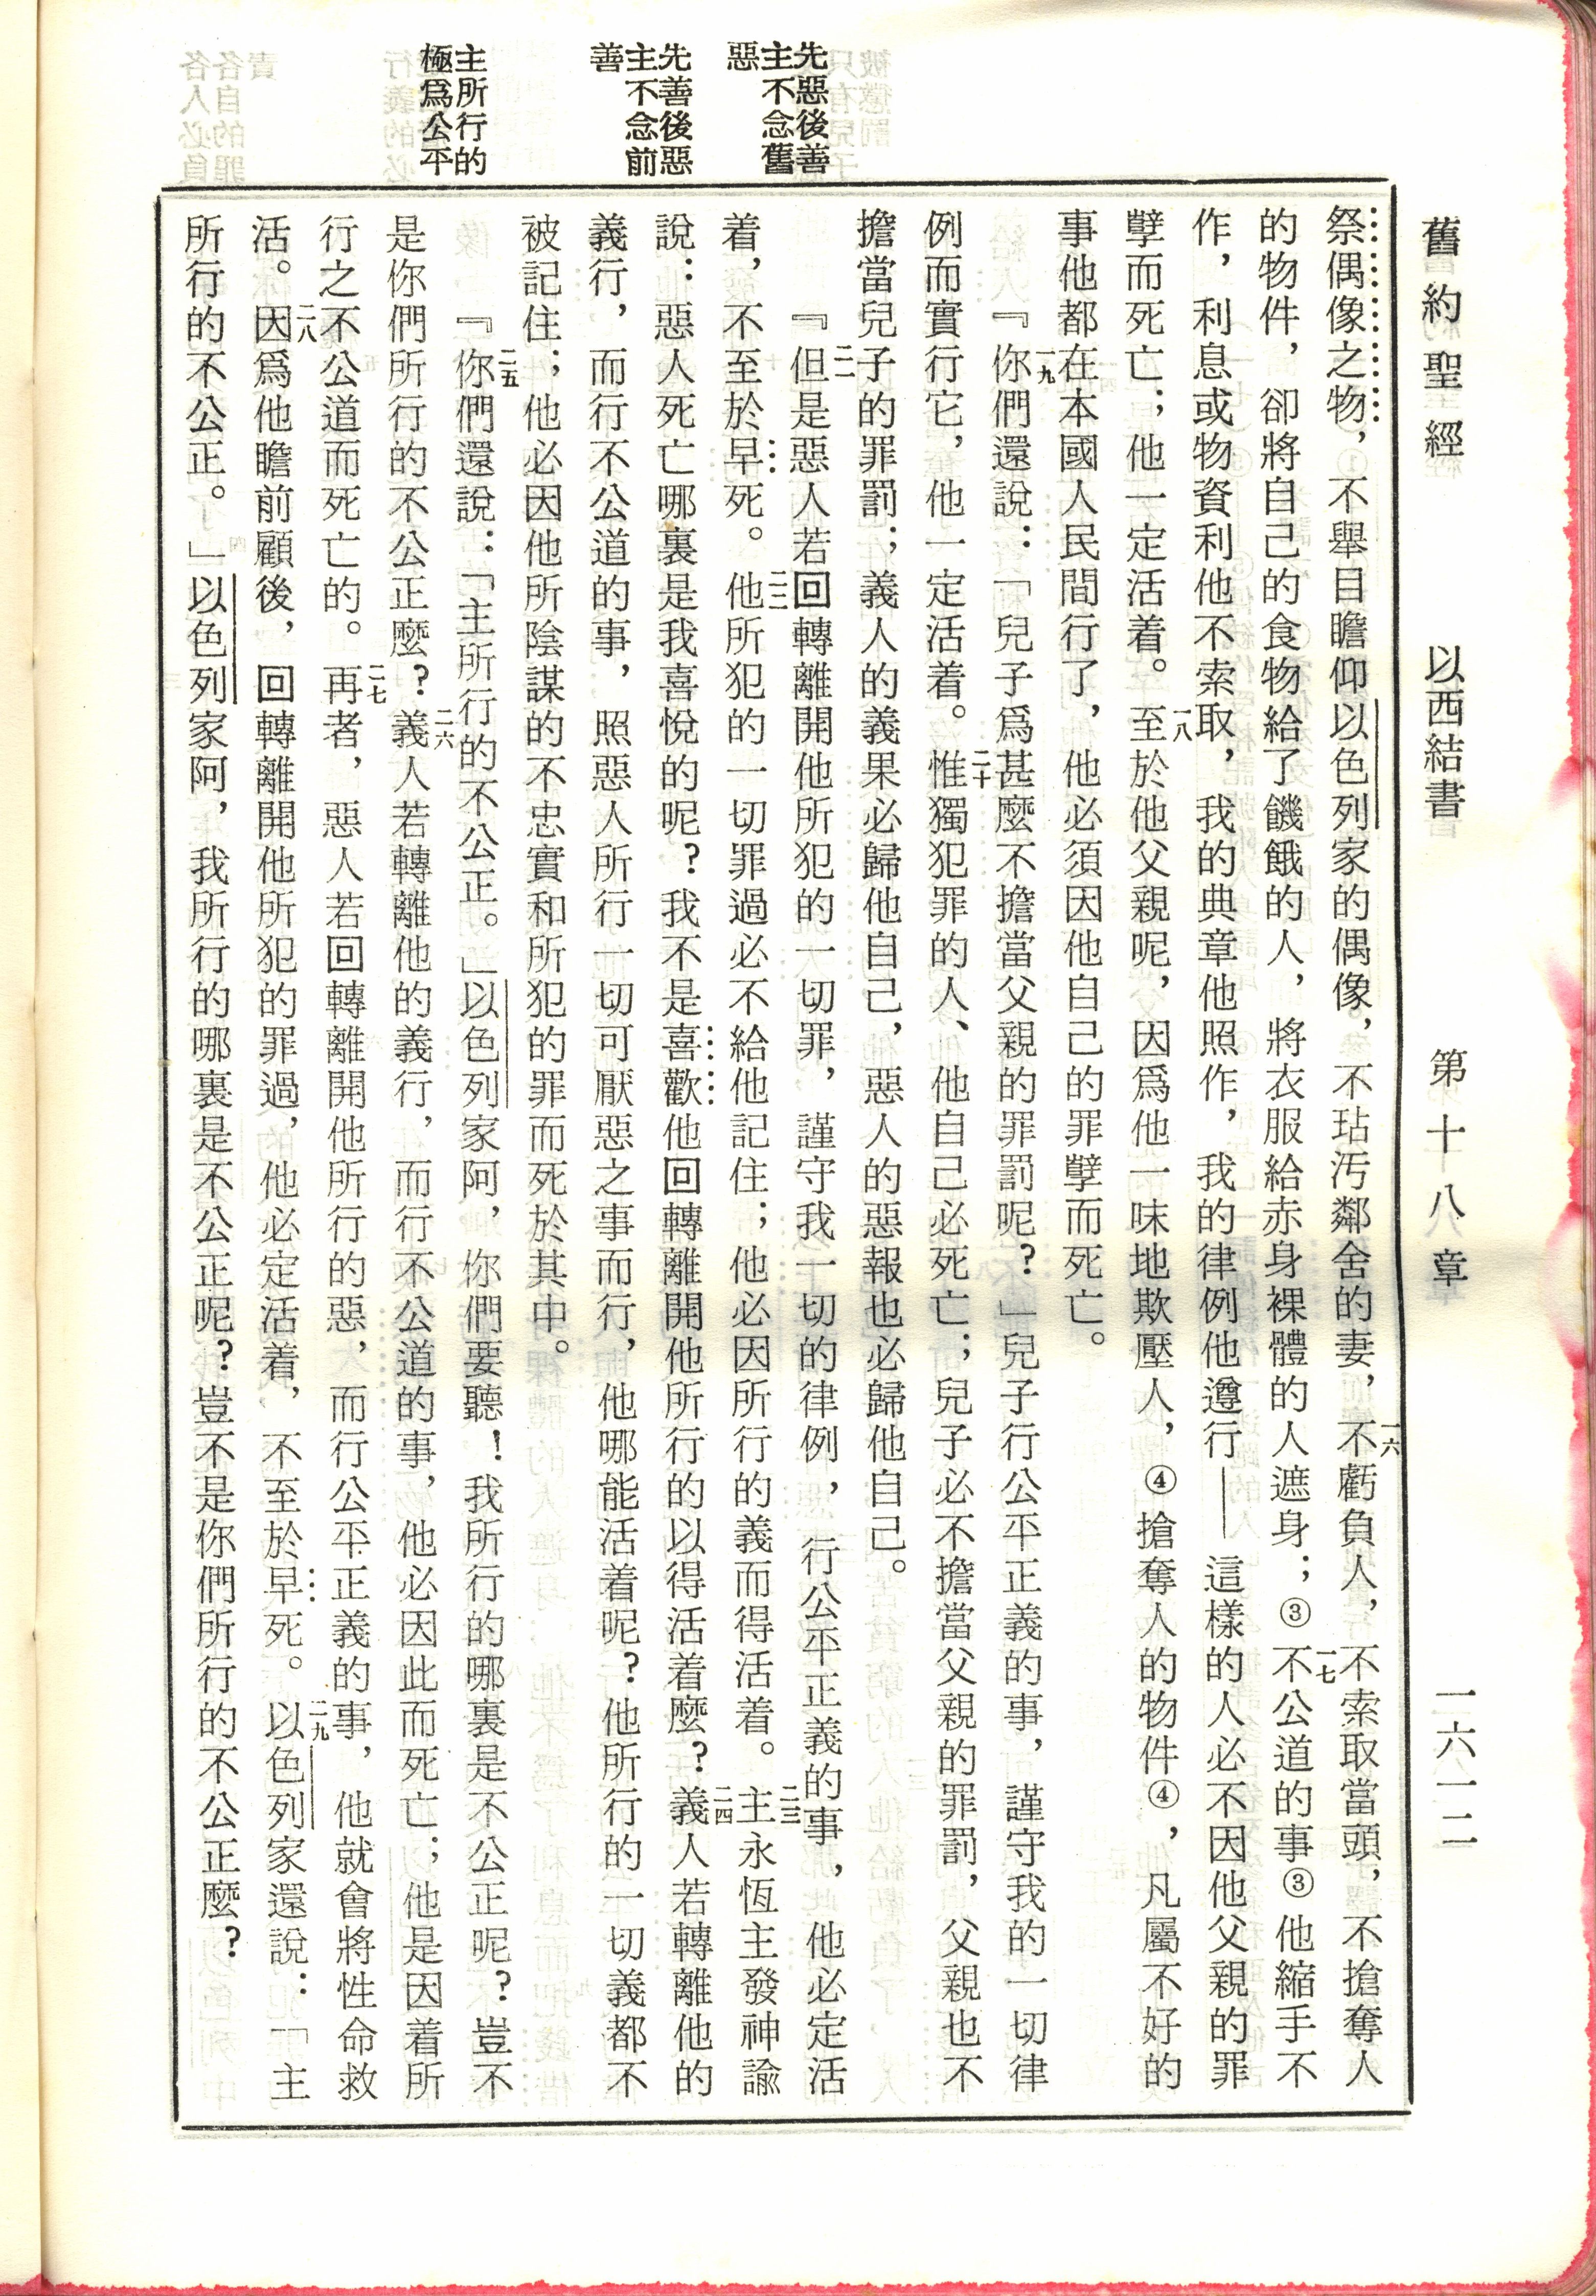 舊約聖經　以西結書　第十八章　一六一二
先惡後善
主不念舊
惡
先善後惡
主不念前
善
主所行的
極爲公平
祭偶像之物，①不舉目瞻仰以色列家的偶像，不玷汚鄰舍的妻，一六不虧負人，不索取當頭，不搶奪人
的物件，卻將自己的食物給了饑餓的人，將衣服給赤身裸體的人遮身；③一七不公道的事③他縮手不
作，利息或物資利他不索取，我的典章他照作，我的律例他遵行——這樣的人必不因他父親的罪
孽而死亡；他一定活着。一八至於他父親呢，因爲他一味地欺壓人，④搶奪人的物件④，凡屬不好的
事他都在本國人民間行了，他必須因他自己的罪孽而死亡。
『一九你們還說：「兒子爲甚麼不擔當父親的罪罰呢？」兒子行公平正義的事，謹守我的一切律
例而實行它，他一定活着。二十惟獨犯罪的人、他自己必死亡；兒子必不擔當父親的罪罰，父親也不
擔當兒子的罪罰；義人的義果必歸他自己，惡人的惡報也必歸他自己。
『二一但是惡人若回轉離開他所犯的一切罪，謹守我一切的律例，行公平正義的事，他必定活
着，不至於早死。二二他所犯的一切罪過必不給他記住；他必因所行的義而得活着。二三主永恆主發神諭
說：惡人死亡哪裏是我喜悅的呢？我不是喜歡他回轉離開他所行的以得活着麼？二四義人若轉離他的
義行，而行不公道的事，照惡人所行一切可厭惡之事而行，他哪能活着呢？他所行的一切義都不
被記住；他必因他所陰謀的不忠實和所犯的罪而死於其中。
『二五你們還說：「主所行的不公正。」以色列家阿，你們要聽！我所行的哪裏是不公正呢？豈不
是你們所行的不公正麼？二六義人若轉離他的義行，而行不公道的事，他必因此而死亡；他是因着所
行之不公道而死亡的。二七再者，惡人若回轉離開他所行的惡，而行公平正義的事，他就會將性命救
活。二八因爲他瞻前顧後，回轉離開他所犯的罪過，他必定活着，不至於早死。二九以色列家還說：「主
所行的不公正。」以色列家阿，我所行的哪裏是不公正呢？豈不是你們所行的不公正麼？